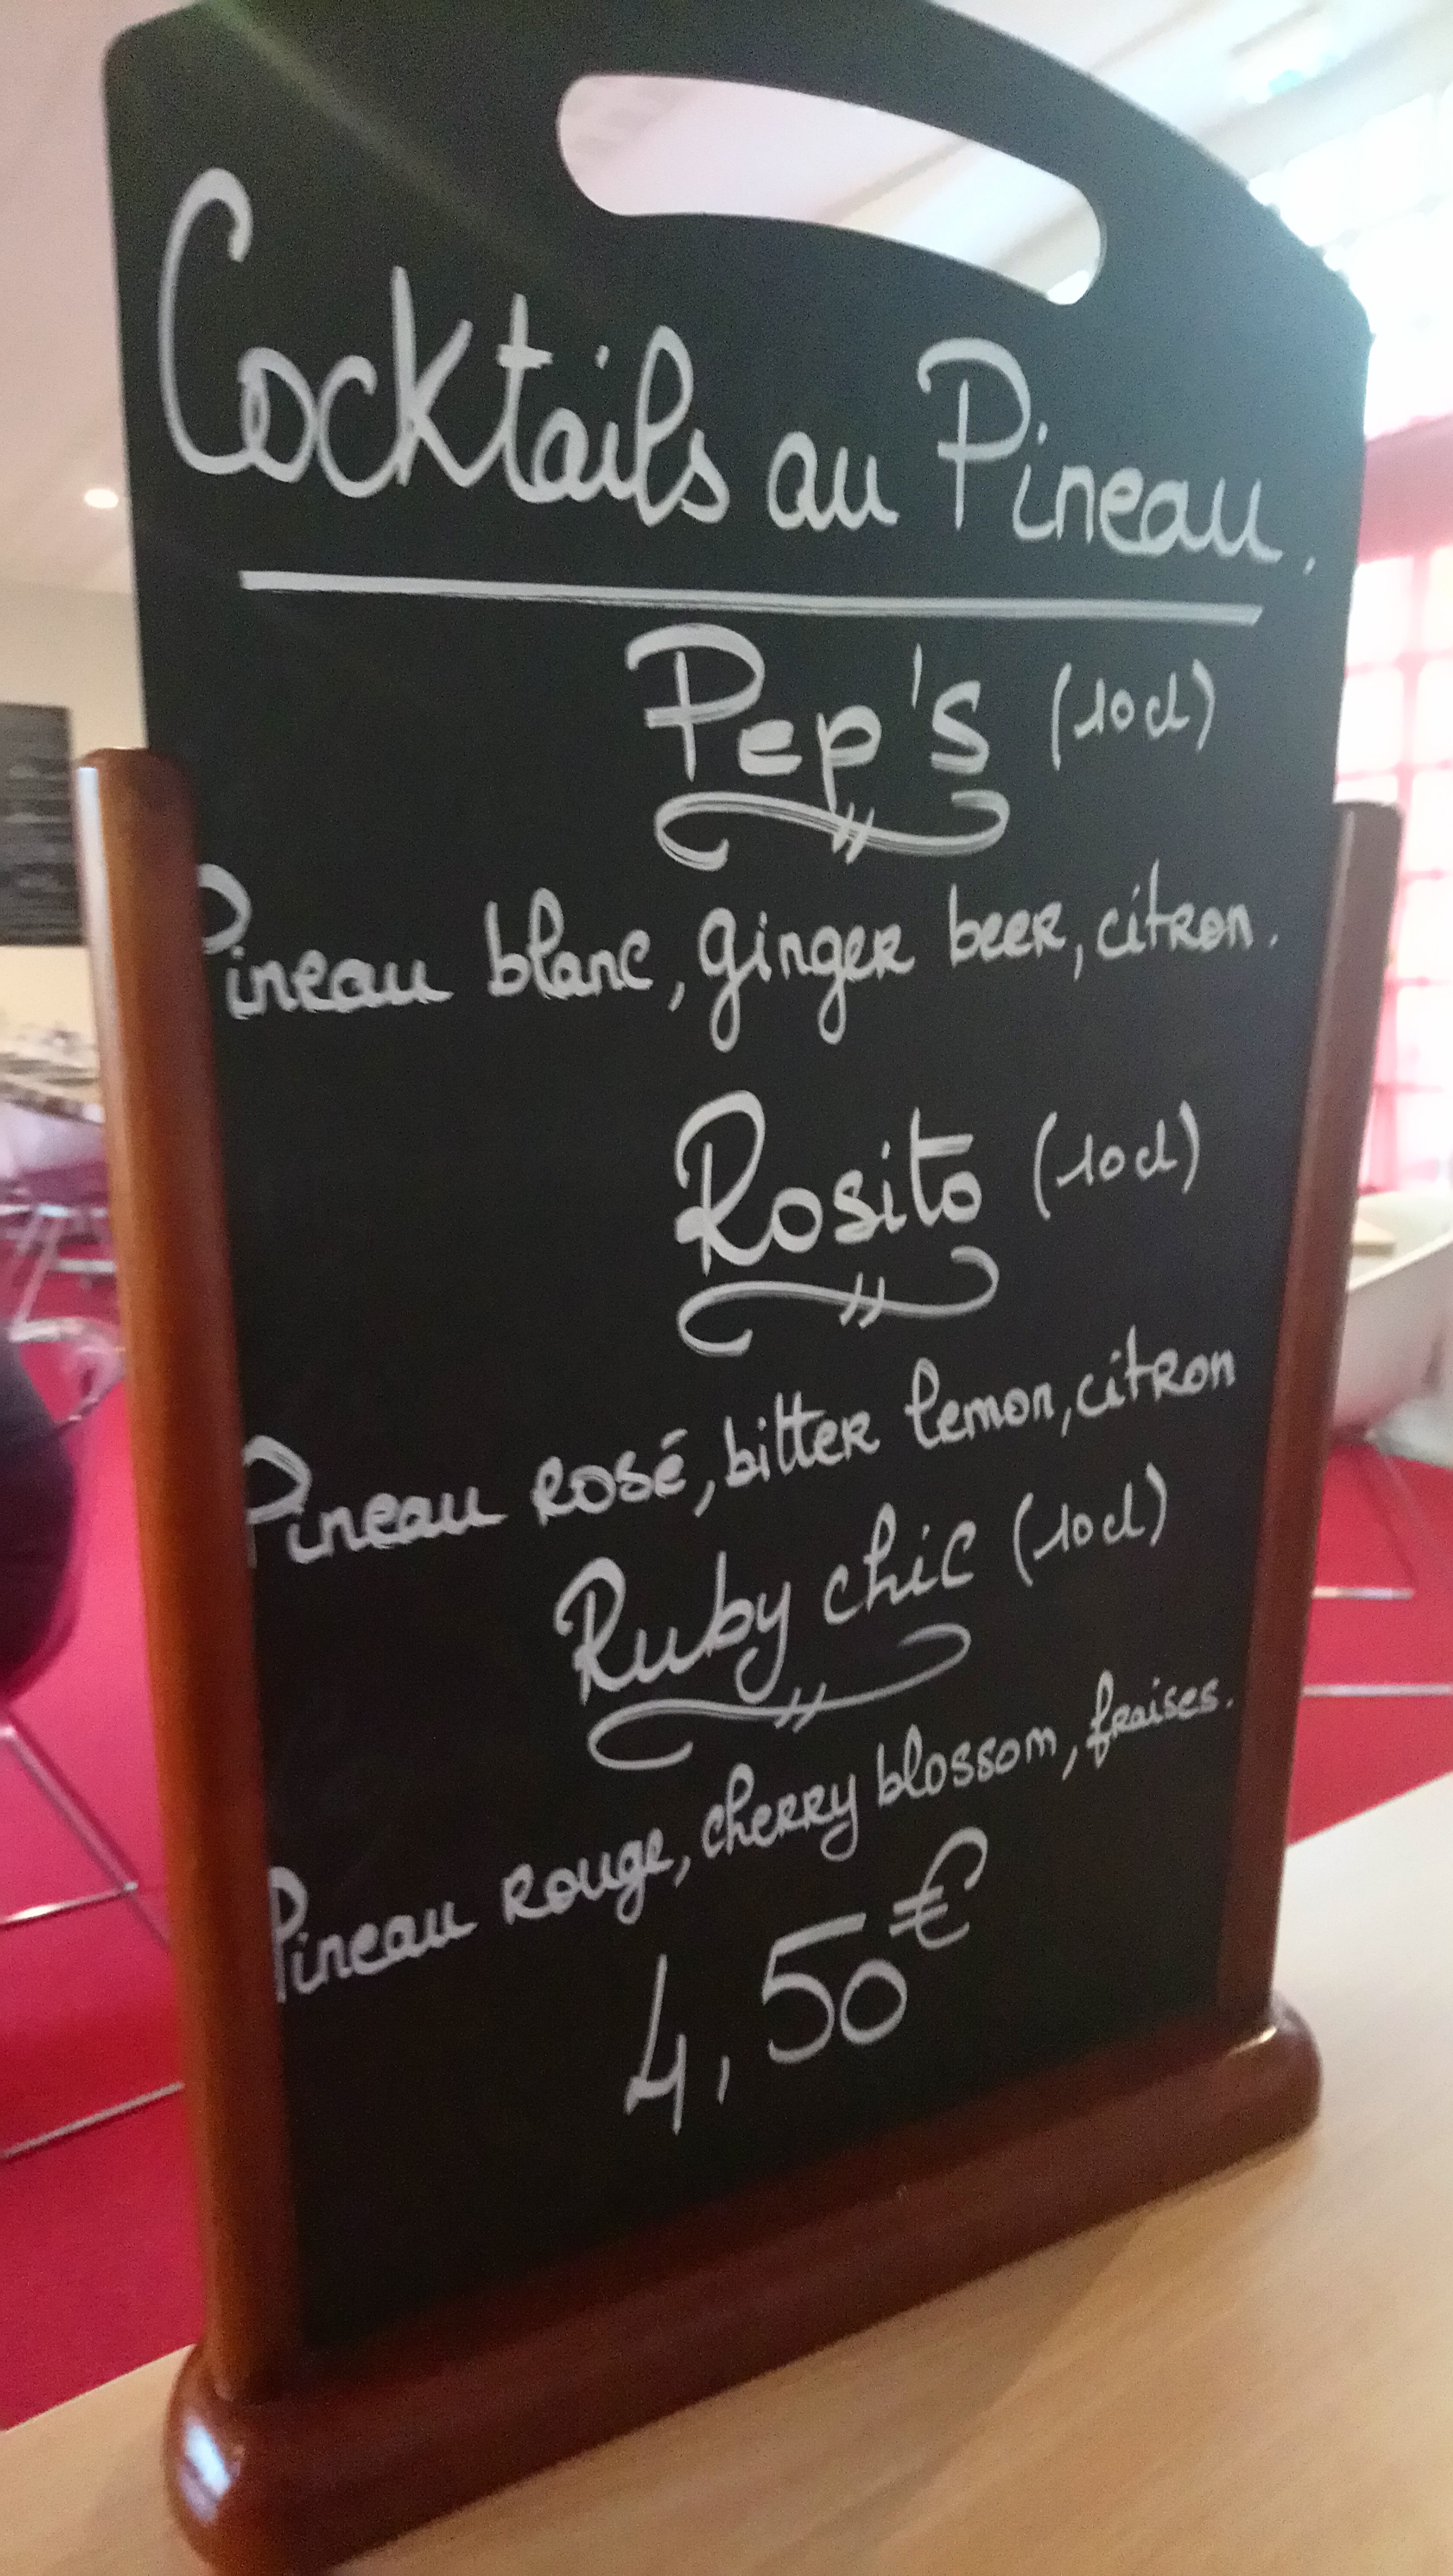 Cocktails au Pineau.
Pep's (10cl)
Pineau blanc, ginger beer, citron.
Rosito (10cl)
Pineau rosé, bitter lemon, citron
Ruby chic (10cl)
Pineau rouge, cherry blossom, fraises.
4,50€